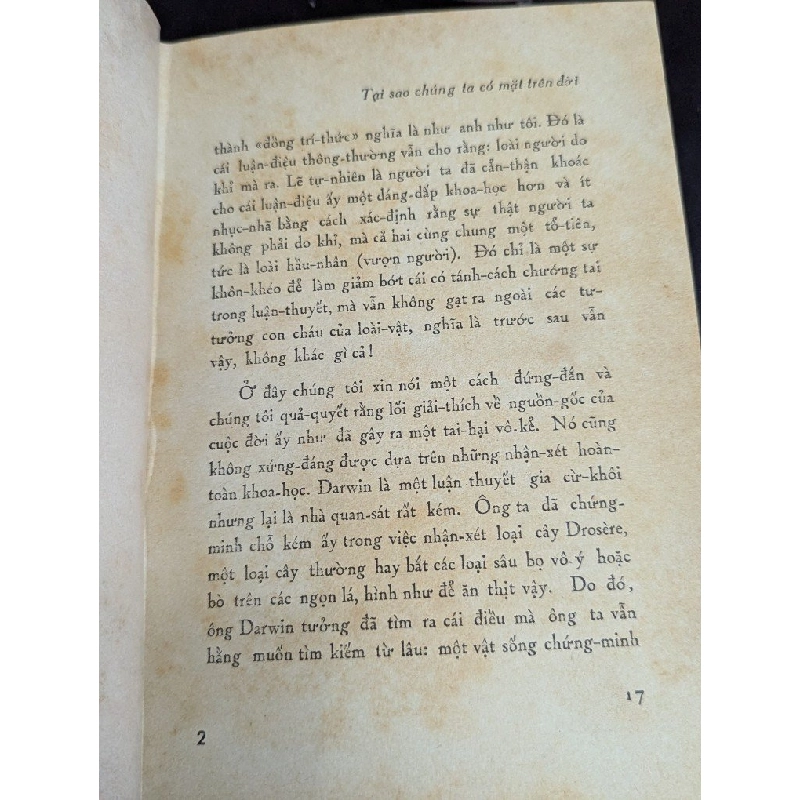 Tại sao chúng ta có mặt trên đời
thành «đồng trí-thức» nghĩa là như anh như tôi. Đó là
cái luận-điệu thông-thường vẫn cho rằng: loài người do
khỉ mà ra. Lẽ tự-nhiên là người ta đã cẩn-thận khoác
cho cái luận-điệu ấy một dáng-dấp khoa-học hơn và ít
nhục-nhã bằng cách xác-định rằng sự thật người ta
không phải do khỉ, mà cả hai cùng chung một tổ-tiên,
tức là loài hầu-nhân (vượn người). Đó chỉ là một sự
khôn-khéo để làm giảm bớt cái có tánh-cách chướng tai
trong luận-thuyết, mà vẫn không gạt ra ngoài các tư-
tưởng con cháu của loài-vật, nghĩa là trước sau vẫn
vậy, không khác gì cả!
Ở đây chúng tôi xin nói một cách đứng-đắn và
chúng tôi quả-quyết rằng lối giải-thích về nguồn-gốc của
cuộc đời ấy như đã gây ra một tai-hại vô-kể. Nó cũng
không xứng-đáng được dựa trên những nhận-xét hoàn-
toàn khoa-học. Darwin là một luận thuyết gia cừ-khôi
nhưng lại là nhà quan-sát rất kém. Ông ta đã chứng-
minh chỗ kém ấy trong việc nhận-xét loại cây Drosère,
một loại cây thường hay bắt các loại sâu bọ vô-ý hoặc
bò trên các ngọn lá, hình như để ăn thịt vậy. Do đó,
ông Darwin tưởng đã tìm ra cái điều mà ông ta vẫn
hằng muốn tìm kiếm từ lâu: một vật sống chứng-minh
17
2